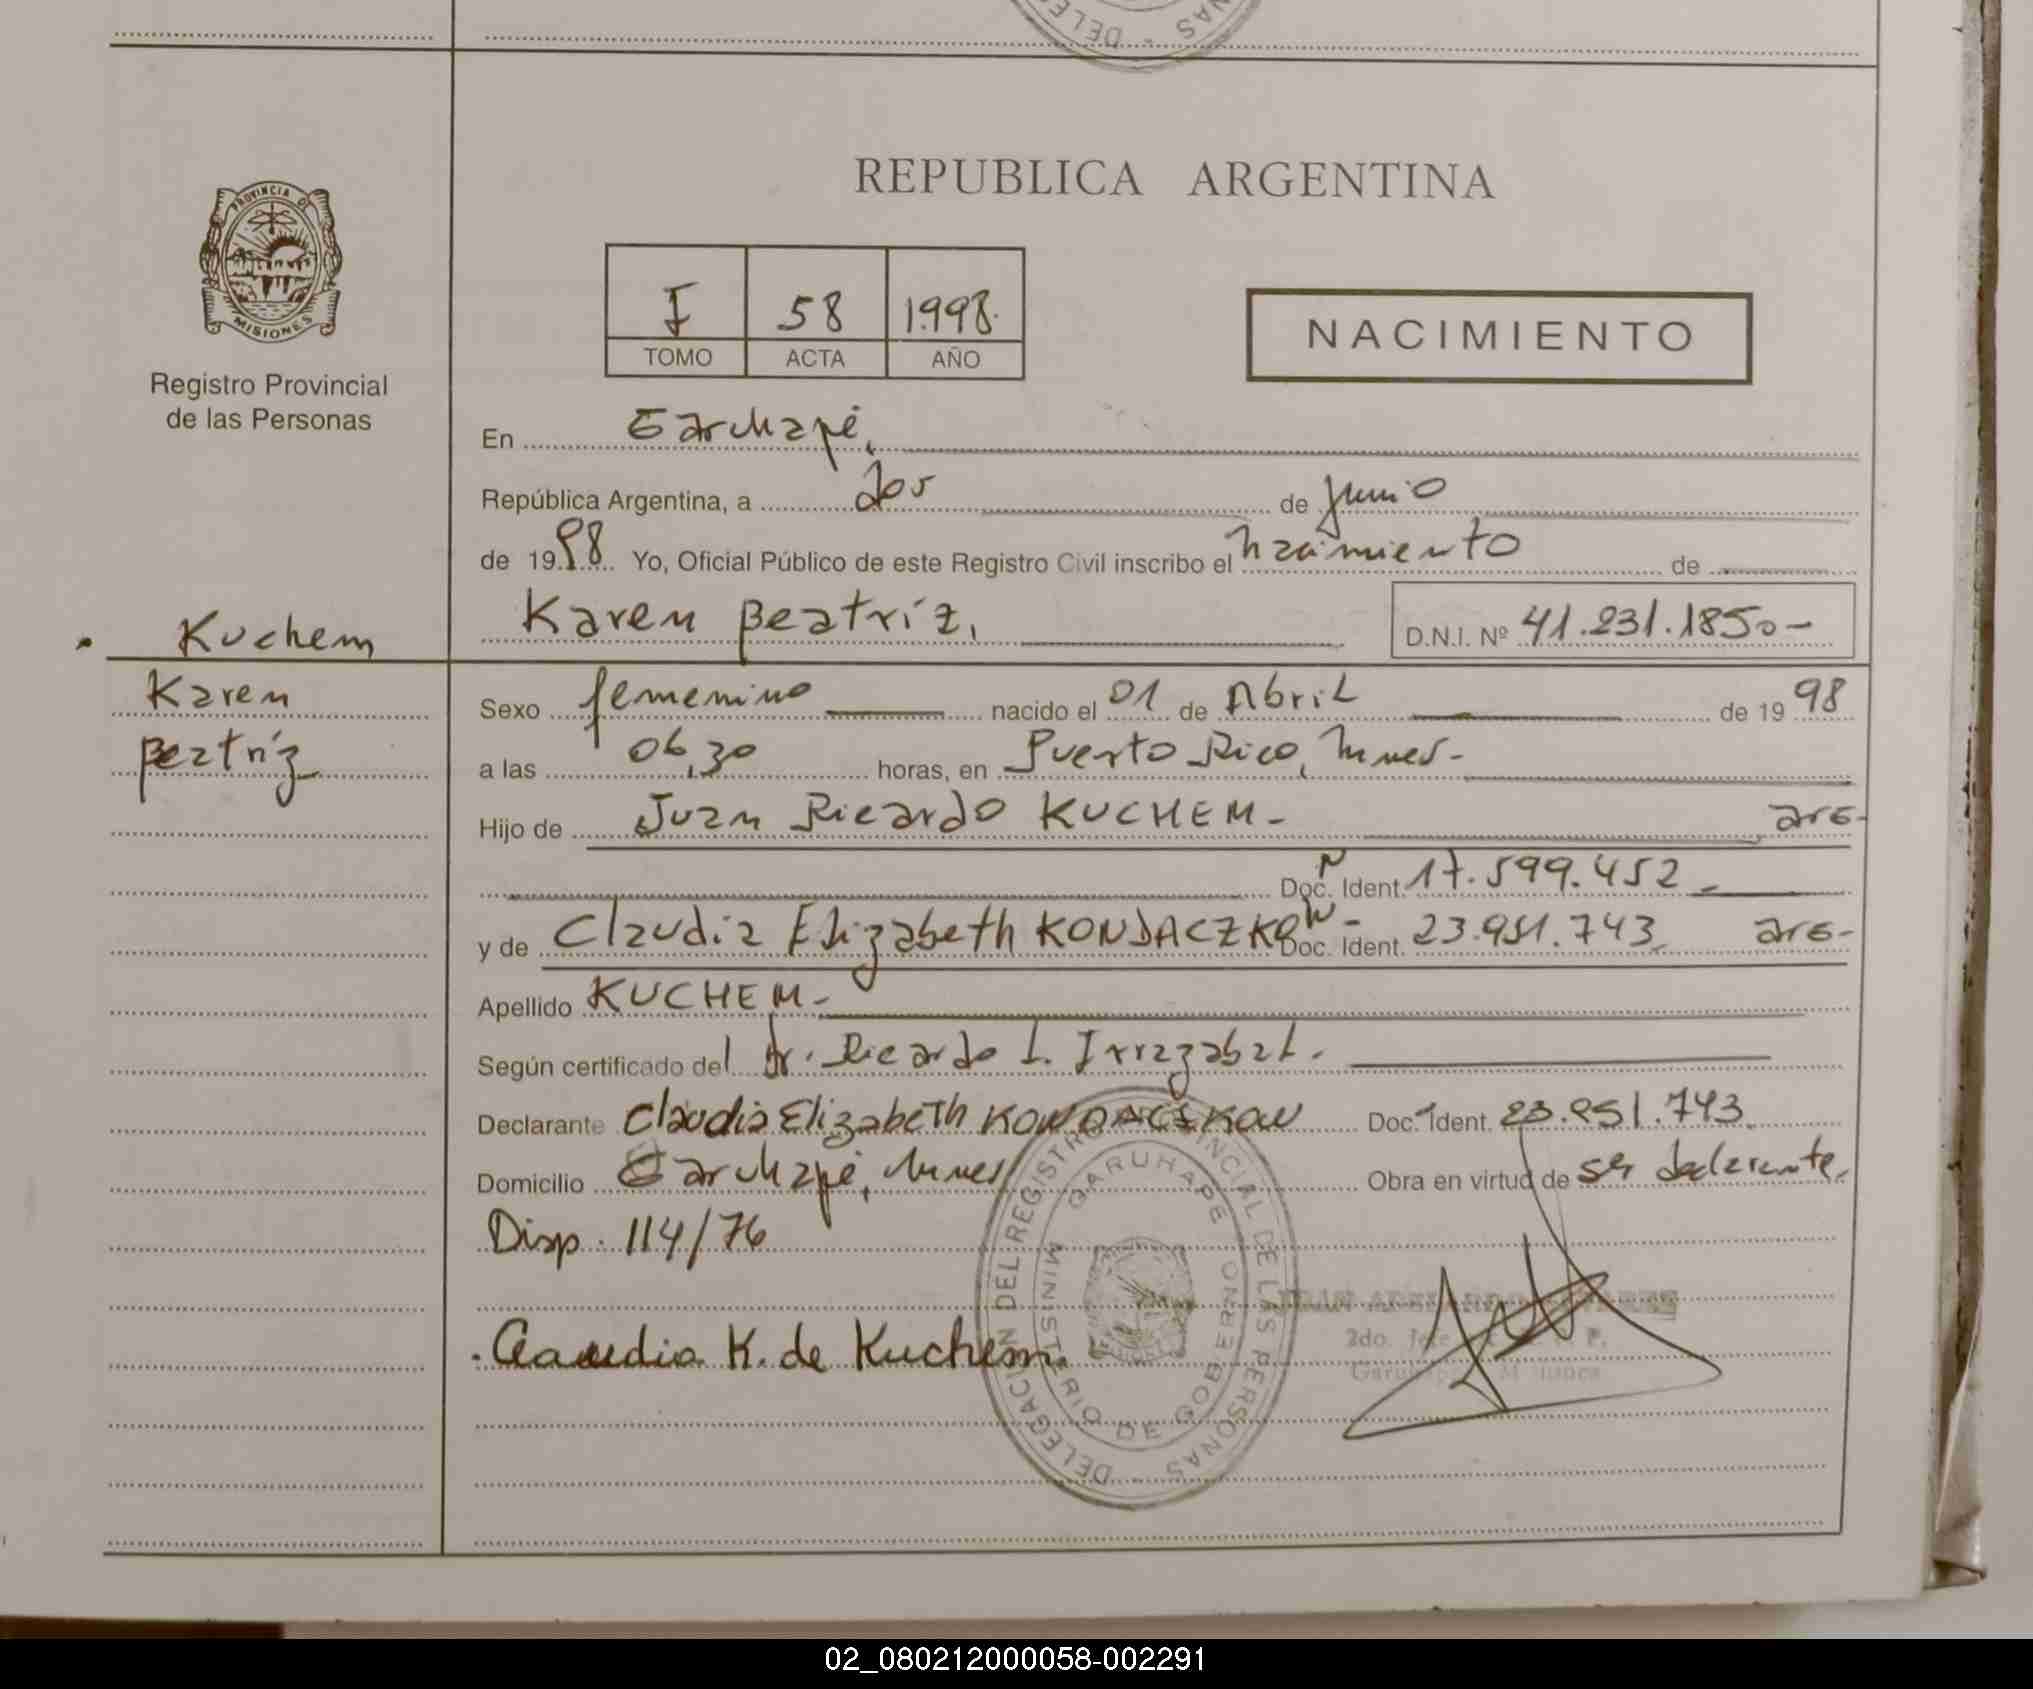 REPUBLICA ARGENTINA
PROVINCIA DE
MISIONES
Registro Provincial
de las Personas
I 58 1998.
TOMO ACTA AÑO
NACIMIENTO
En Garuhapé,
República Argentina, a dos de junio
de 1998 Yo, Oficial Público de este Registro Civil inscribo el nacimiento de
Karen Beatríz, D.N.I. Nº 41.231.1850-
Kuchem
Karen
Beatríz
Sexo femenino nacido el 01 de Abril de 1998
a las 06,30 horas, en Puerto Rico, Mnes-
Hijo de Juan Ricardo KUCHEM- arg-
Doc. Ident. 17.599.452-
y de Claudia Elizabeth KONDACZKOW- Doc. Ident. 23.951.743 arg-
Apellido KUCHEM-
Según certificado del Dr. Ricardo I. Irrazabal.
Declarante Claudia Elizabeth KONDACZKOW Doc. Ident. 23.951.743
Domicilio Garuhapé, Mnes Obra en virtud de ser declarante.
Disp. 114/76
Claudia K. de Kuchem.
DELEGACION DEL REGISTRO PROVINCIAL DE LAS PERSONAS
GARUHAPE
MINISTERIO DE GOBIERNO
2do. Jefe
Garuhapé Misiones
02_080212000058-002291